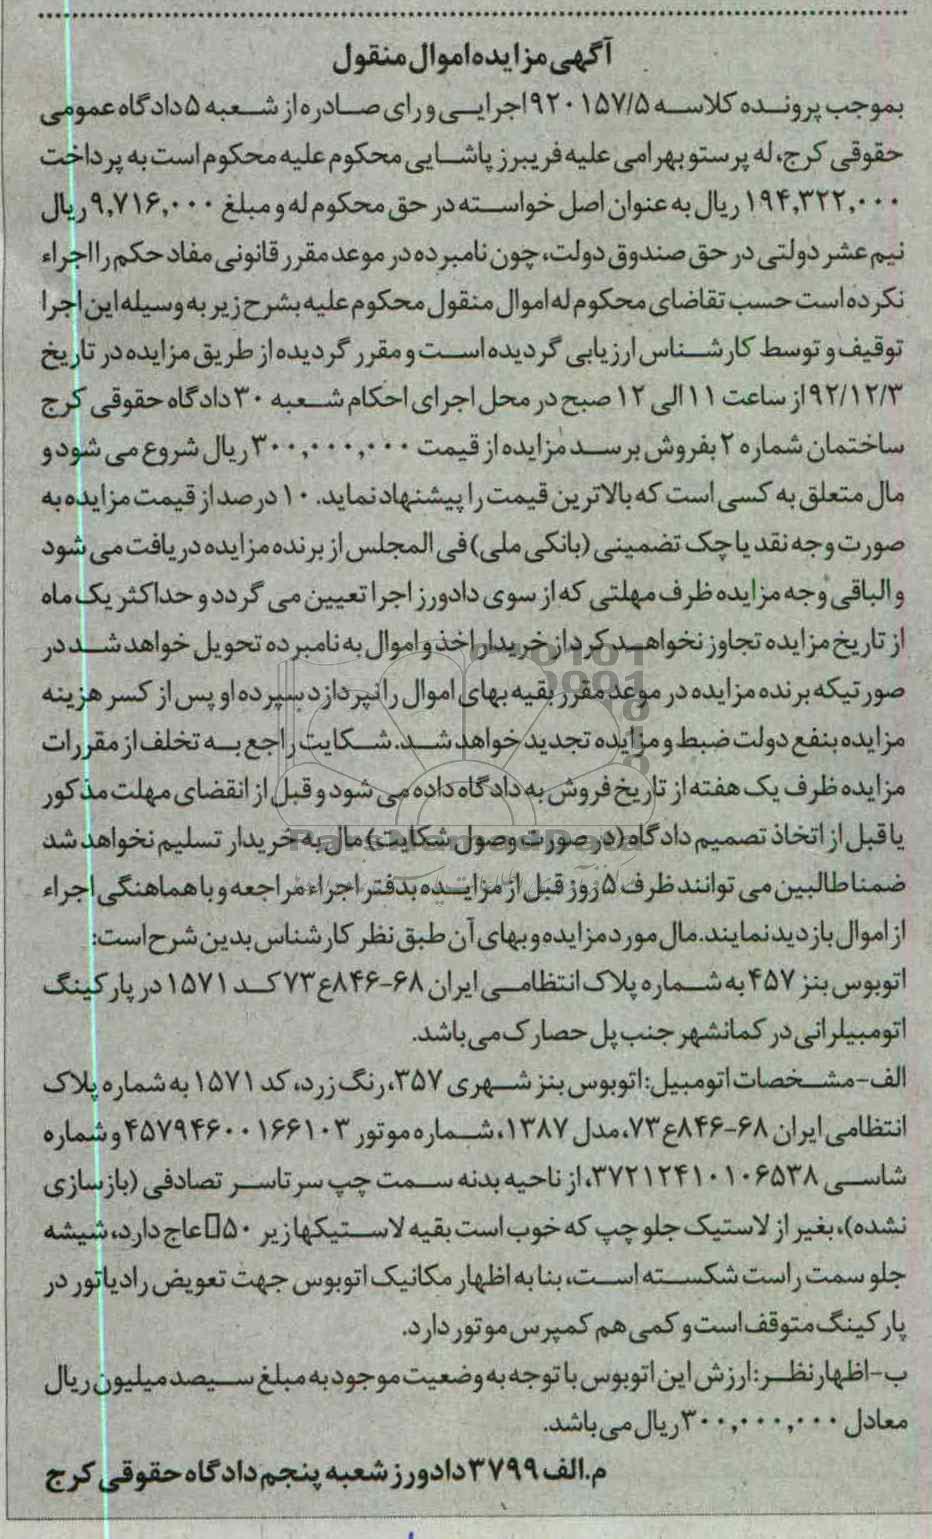 آگهی مزایده اموال منقول
بموجب پرونده کلاسه ۹۲۰۱۵۷/۵ اجرایی و رای صادره از شعبه ۵ دادگاه عمومی
حقوقی کرج، له پرستو بهرامی علیه فریبرز پاشایی محکوم علیه محکوم است به پرداخت
۱۹۴,۳۲۲,۰۰۰ ریال به عنوان اصل خواسته در حق محکوم له و مبلغ ۹,۷۱۶,۰۰۰ ریال
نیم عشر دولتی در حق صندوق دولت، چون نامبرده در موعد مقرر قانونی مفاد حکم را اجراء
نکرده است حسب تقاضای محکوم له اموال منقول محکوم علیه بشرح زیر به وسیله این اجرا
توقیف و توسط کارشناس ارزیابی گردیده است و مقرر گردیده از طریق مزایده در تاریخ
۹۲/۱۲/۳ از ساعت ۱۱ الی ۱۲ صبح در محل اجرای احکام شعبه ۳۰ دادگاه حقوقی کرج
ساختمان شماره ۲ بفروش برسد مزایده از قیمت ۳۰۰,۰۰۰,۰۰۰ ریال شروع می شود و
مال متعلق به کسی است که بالاترین قیمت را پیشنهاد نماید. ۱۰ درصد از قیمت مزایده به
صورت وجه نقد یا چک تضمینی (بانکی ملی) فی المجلس از برنده مزایده دریافت می شود
و الباقی وجه مزایده ظرف مهلتی که از سوی دادورز اجرا تعیین می گردد و حداکثر یک ماه
از تاریخ مزایده تجاوز نخواهد کرد از خریدار اخذ و اموال به نامبرده تحویل خواهد شد در
صورتیکه برنده مزایده در موعد مقرر بقیه بهای اموال را نپردازد سپرده او پس از کسر هزینه
مزایده بنفع دولت ضبط و مزایده تجدید خواهد شد. شکایت راجع به تخلف از مقررات
مزایده ظرف یک هفته از تاریخ فروش به دادگاه داده می شود و قبل از انقضای مهلت مذکور
یا قبل از اتخاذ تصمیم دادگاه (در صورت وصول شکایت) مال به خریدار تسلیم نخواهد شد
ضمنا طالبین می توانند ظرف ۵ روز قبل از مزایده بدفتر اجراء مراجعه و با هماهنگی اجراء
از اموال بازدید نمایند. مال مورد مزایده و بهای آن طبق نظر کارشناس بدین شرح است:
اتوبوس بنز ۴۵۷ به شماره پلاک انتظامی ایران ۶۸-۸۴۶ع۷۳ کد ۱۵۷۱ در پارکینگ
اتومبیلرانی در کمانشهر جنب پل حصارک می باشد.
الف-مشخصات اتومبیل: اتوبوس بنز شهری ۳۵۷، رنگ زرد، کد ۱۵۷۱ به شماره پلاک
انتظامی ایران ۶۸-۸۴۶ع۷۳، مدل ۱۳۸۷، شماره موتور ۴۵۷۹۴۶۰۰۱۶۶۱۰۳ و شماره
شاسی ۳۷۲۱۲۴۱۰۱۰۶۵۳۸، از ناحیه بدنه سمت چپ سرتاسر تصادفی (بازسازی
نشده)، بغیر از لاستیک جلو چپ که خوب است بقیه لاستیکها زیر ۵۰٪ عاج دارد، شیشه
جلو سمت راست شکسته است، بنا به اظهار مکانیک اتوبوس جهت تعویض رادیاتور در
پارکینگ متوقف است و کمی هم کمپرس موتور دارد.
ب-اظهارنظر: ارزش این اتوبوس با توجه به وضعیت موجود به مبلغ سیصد میلیون ریال
معادل ۳۰۰,۰۰۰,۰۰۰ ریال می باشد.
م.الف ۳۷۹۹ دادورز شعبه پنجم دادگاه حقوقی کرج